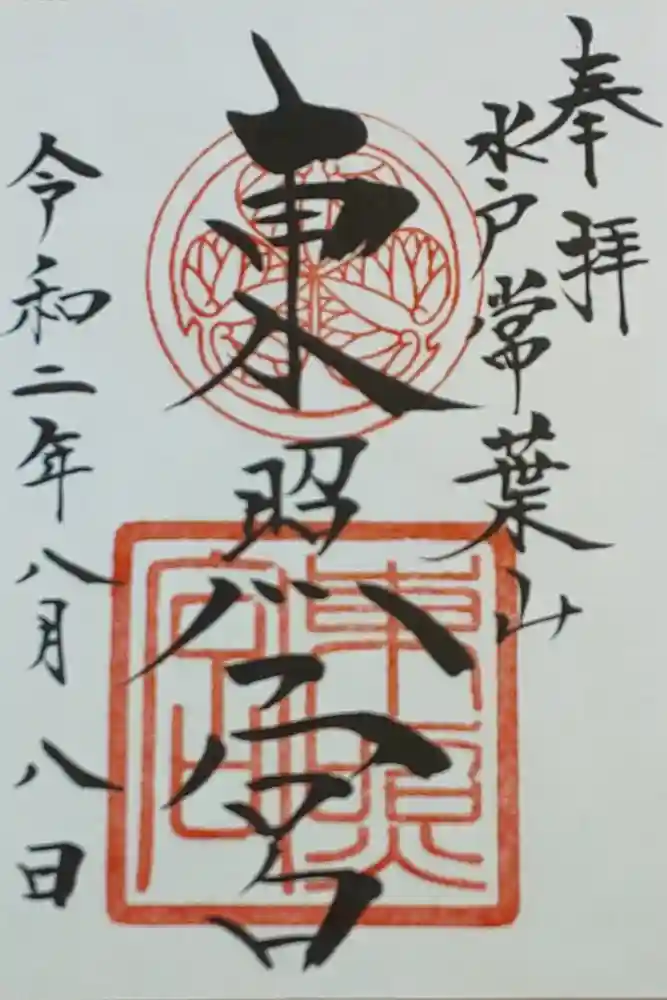 奉拝
水戸常葉山
東照宮
令和二年八月八日
東照宮印